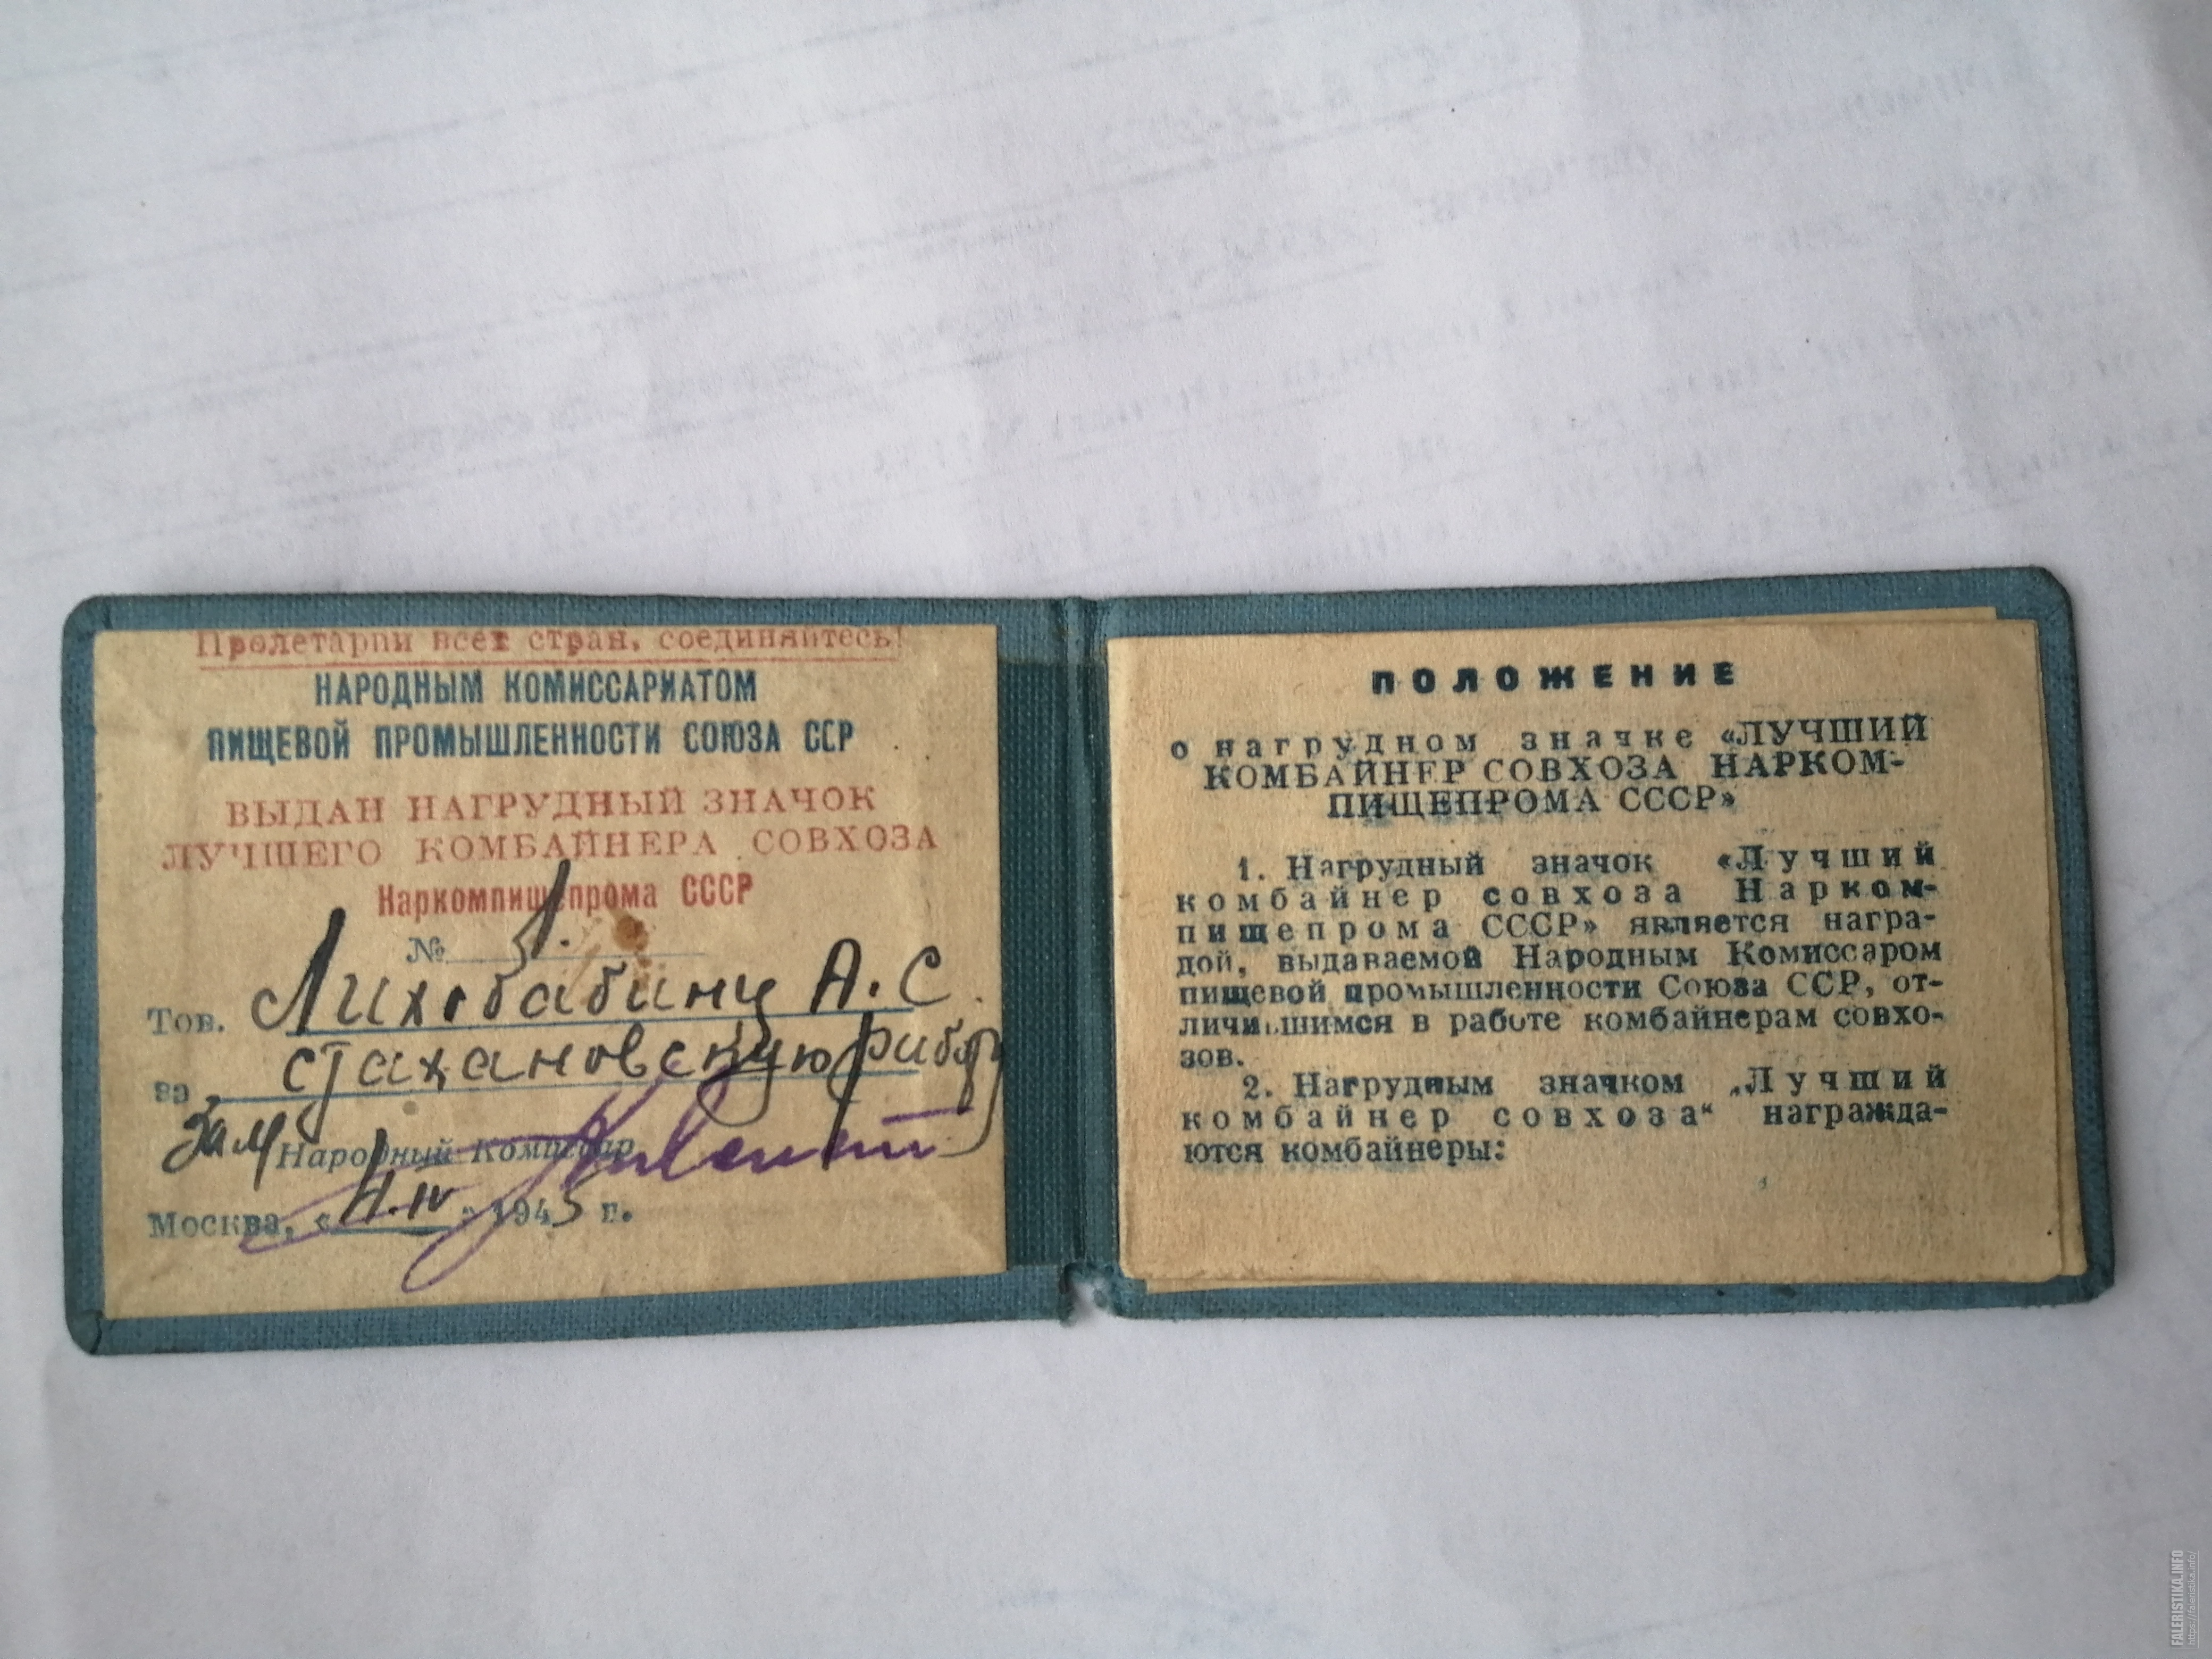 Пролетарии всех стран, соединяйтесь!
НАРОДНЫМ КОМИССАРИАТОМ
ПИЩЕВОЙ ПРОМЫШЛЕННОСТИ СОЮЗА ССР
ВЫДАН НАГРУДНЫЙ ЗНАЧОК
ЛУЧШЕГО КОМБАЙНЕРА СОВХОЗА
Наркомпищепрома СССР
№ 1.
Тов. Лихобабину А.С.
за стахановскую работу
Зам Народный Комиссар
Москва, «4.IV» 1945 г.
ПОЛОЖЕНИЕ
о нагрудном значке «ЛУЧШИЙ
КОМБАЙНЕР СОВХОЗА НАРКОМ-
ПИЩЕПРОМА СССР»
1. Нагрудный значок «Лучший
комбайнер совхоза Нарком-
пищепрома СССР» является награ-
дой, выдаваемой Народным Комиссаром
пищевой промышленности Союза ССР, от-
личившимся в работе комбайнерам совхо-
зов.
2. Нагрудным значком „Лучший
комбайнер совхоза“ награжда-
ются комбайнеры:
FALERISTIKA.INFO
https://faleristika.info/